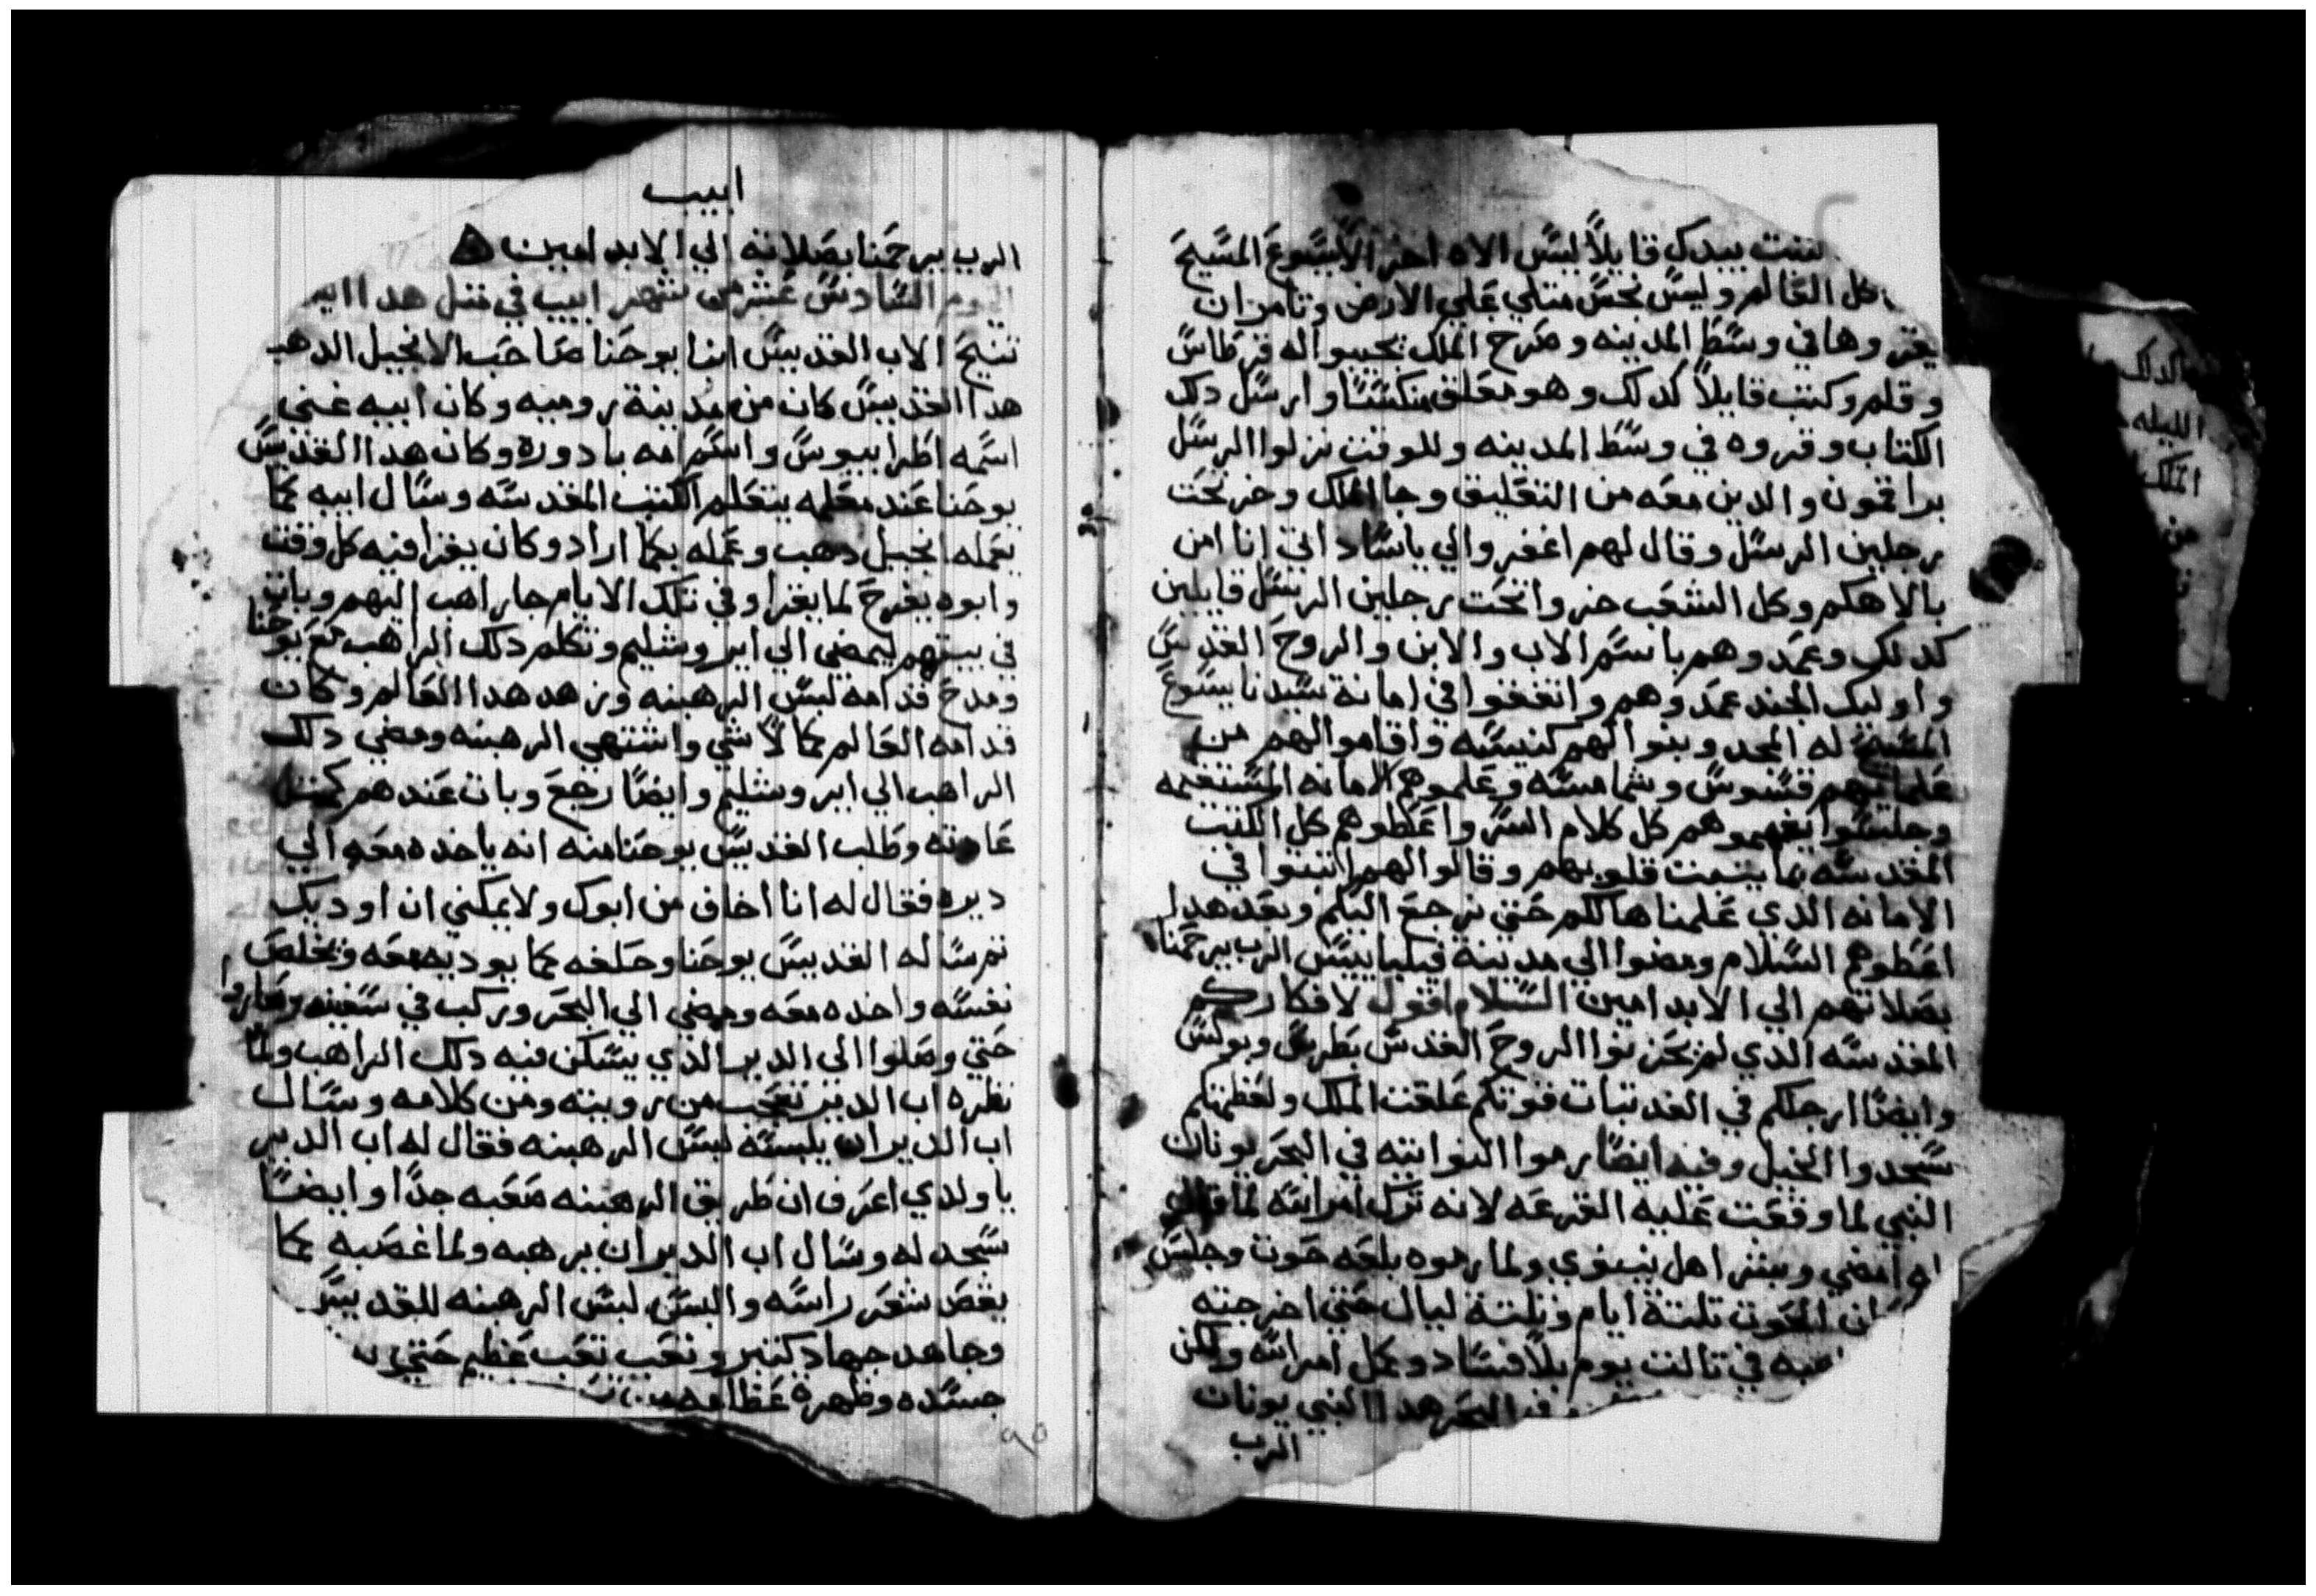 تكتب بيدك قايلاً ليس الاه اخر الا يسوع المسيح
كل العالم وليس نجس متلي علي الارض وتامر ان
يقروها في وسط المدينه وصرخ الملك تجيبوا له قرطاس
وقلم وكتب قايلاً كدلك وهو معلق منكسًا وارسل دلك
الكتاب وقروه في وسط المدينه وللوقت نزلوا الرسل
براقمون والدين معه من التعليق وجا الملك وخر تحت
رجلين الرسل وقال لهم اغفروا لي ياسادا تي انا امن
بالاهكم وكل الشعب خروا تحت رجلين الرسل قايلين
كدلك وعمدوهم باسم الاب والابن والروح القدس
واوليك الجند عمدوهم واتفقوا في امانة سيدنا يسوع
المسيح له المجد وبنوا لهم كنيسه واقاموا لهم من
علمايهم قسوس وشمامسه وعلموهم الامانه المستقيمه
وجلسوا يفهموهم كل كلام السر واعطوهم كل الكتب
المقدسه بما يتبت قلوبهم وقالوا لهم اتبتوا في
الامانه الدي علمناها لكم حتي نرجع اليكم وبعد هدا
اعطوهم السلام ومضوا الي مدينة فيلبا ييس الرب يرحمنا
بصلاتهم الي الابد امين السلام اقول لافكاركم
المقدسه الدي لم تحزنوا الروح القدس بطرس وبولس
وايضًا ارجلكم في الغد تبات قوتكم علقت الملك ولعظمتكم
سجدوا الخيل وفيه ايضًا رموا النواتيه في البحر يونان
النبي لما وقعت عليه القرعه لانه ترك امر الله لما قال
له امضي وبشر اهل نينوي ولما رموه بلعه حوت وجلس
الحوت تلتة ايام وتلتة ليال حتي اخرجته
في تالت يوم بلا فساد وعمل امر الله ولكن
البحر هدا النبي يونان
الرب
ابيب
الرب يرحمنا بصلاته الي الابد امين
اليوم السادس عشر من شهر ابيب في متل هدا اليوم
تنيح الاب القديس ابنا يوحنا صاحب الانجيل الدهب
هدا القديس كان من مدينة روميه وكان ابيه غني
اسمه اطرابيوس واسم امه بادوره وكان هدا القديس
يوحنا عند معلمه يتعلم الكتب المقدسه وسال ابيه كما
يعمله انجيل دهب وعمله كما اراد وكان يقرا فيه كل وقت
وابوه يفرح لما يقرا وفي تلك الايام جا راهب اليهم وبات
في بيتهم ليمضي الي ايروشليم وتكلم دلك الراهب مع يوحنا
ومدح قدامه لبس الرهبنه وزهد هدا العالم وكان
قدامه العالم كما لاشي واشتهي الرهبنه ومضي دلك
الراهب الي ايروشليم وايضًا رجع وبات عندهم كمتل
عادته وطلب القديس يوحنا منه انه ياخده معه الي
ديره فقال له انا اخاف من ابوك ولا يمكني ان اوديك
تم ساله القديس يوحنا وحلفه كما يوديه معه ويخلص
نفسه واخده معه ومضي الي البحر وركب في سفينه وساروا
حتي وصلوا الي الدير الدي يسكن فيه دلك الراهب ولما
نظره اب الدير تعجب من رويته ومن كلامه وسال
اب الدير ان يلبسه لبس الرهبنه فقال له اب الدير
يا ولدي اعرف ان طريق الرهبنه صعبه جدًا وايضًا
سجد له وسال اب الدير ان يرهبه ولما غصبه كما
يقص شعر راسه والبس لبس الرهبنه للقديس
وجاهد جهاد كتير وتعب تعب عظيم حتي
جسده وظهره عظامه من